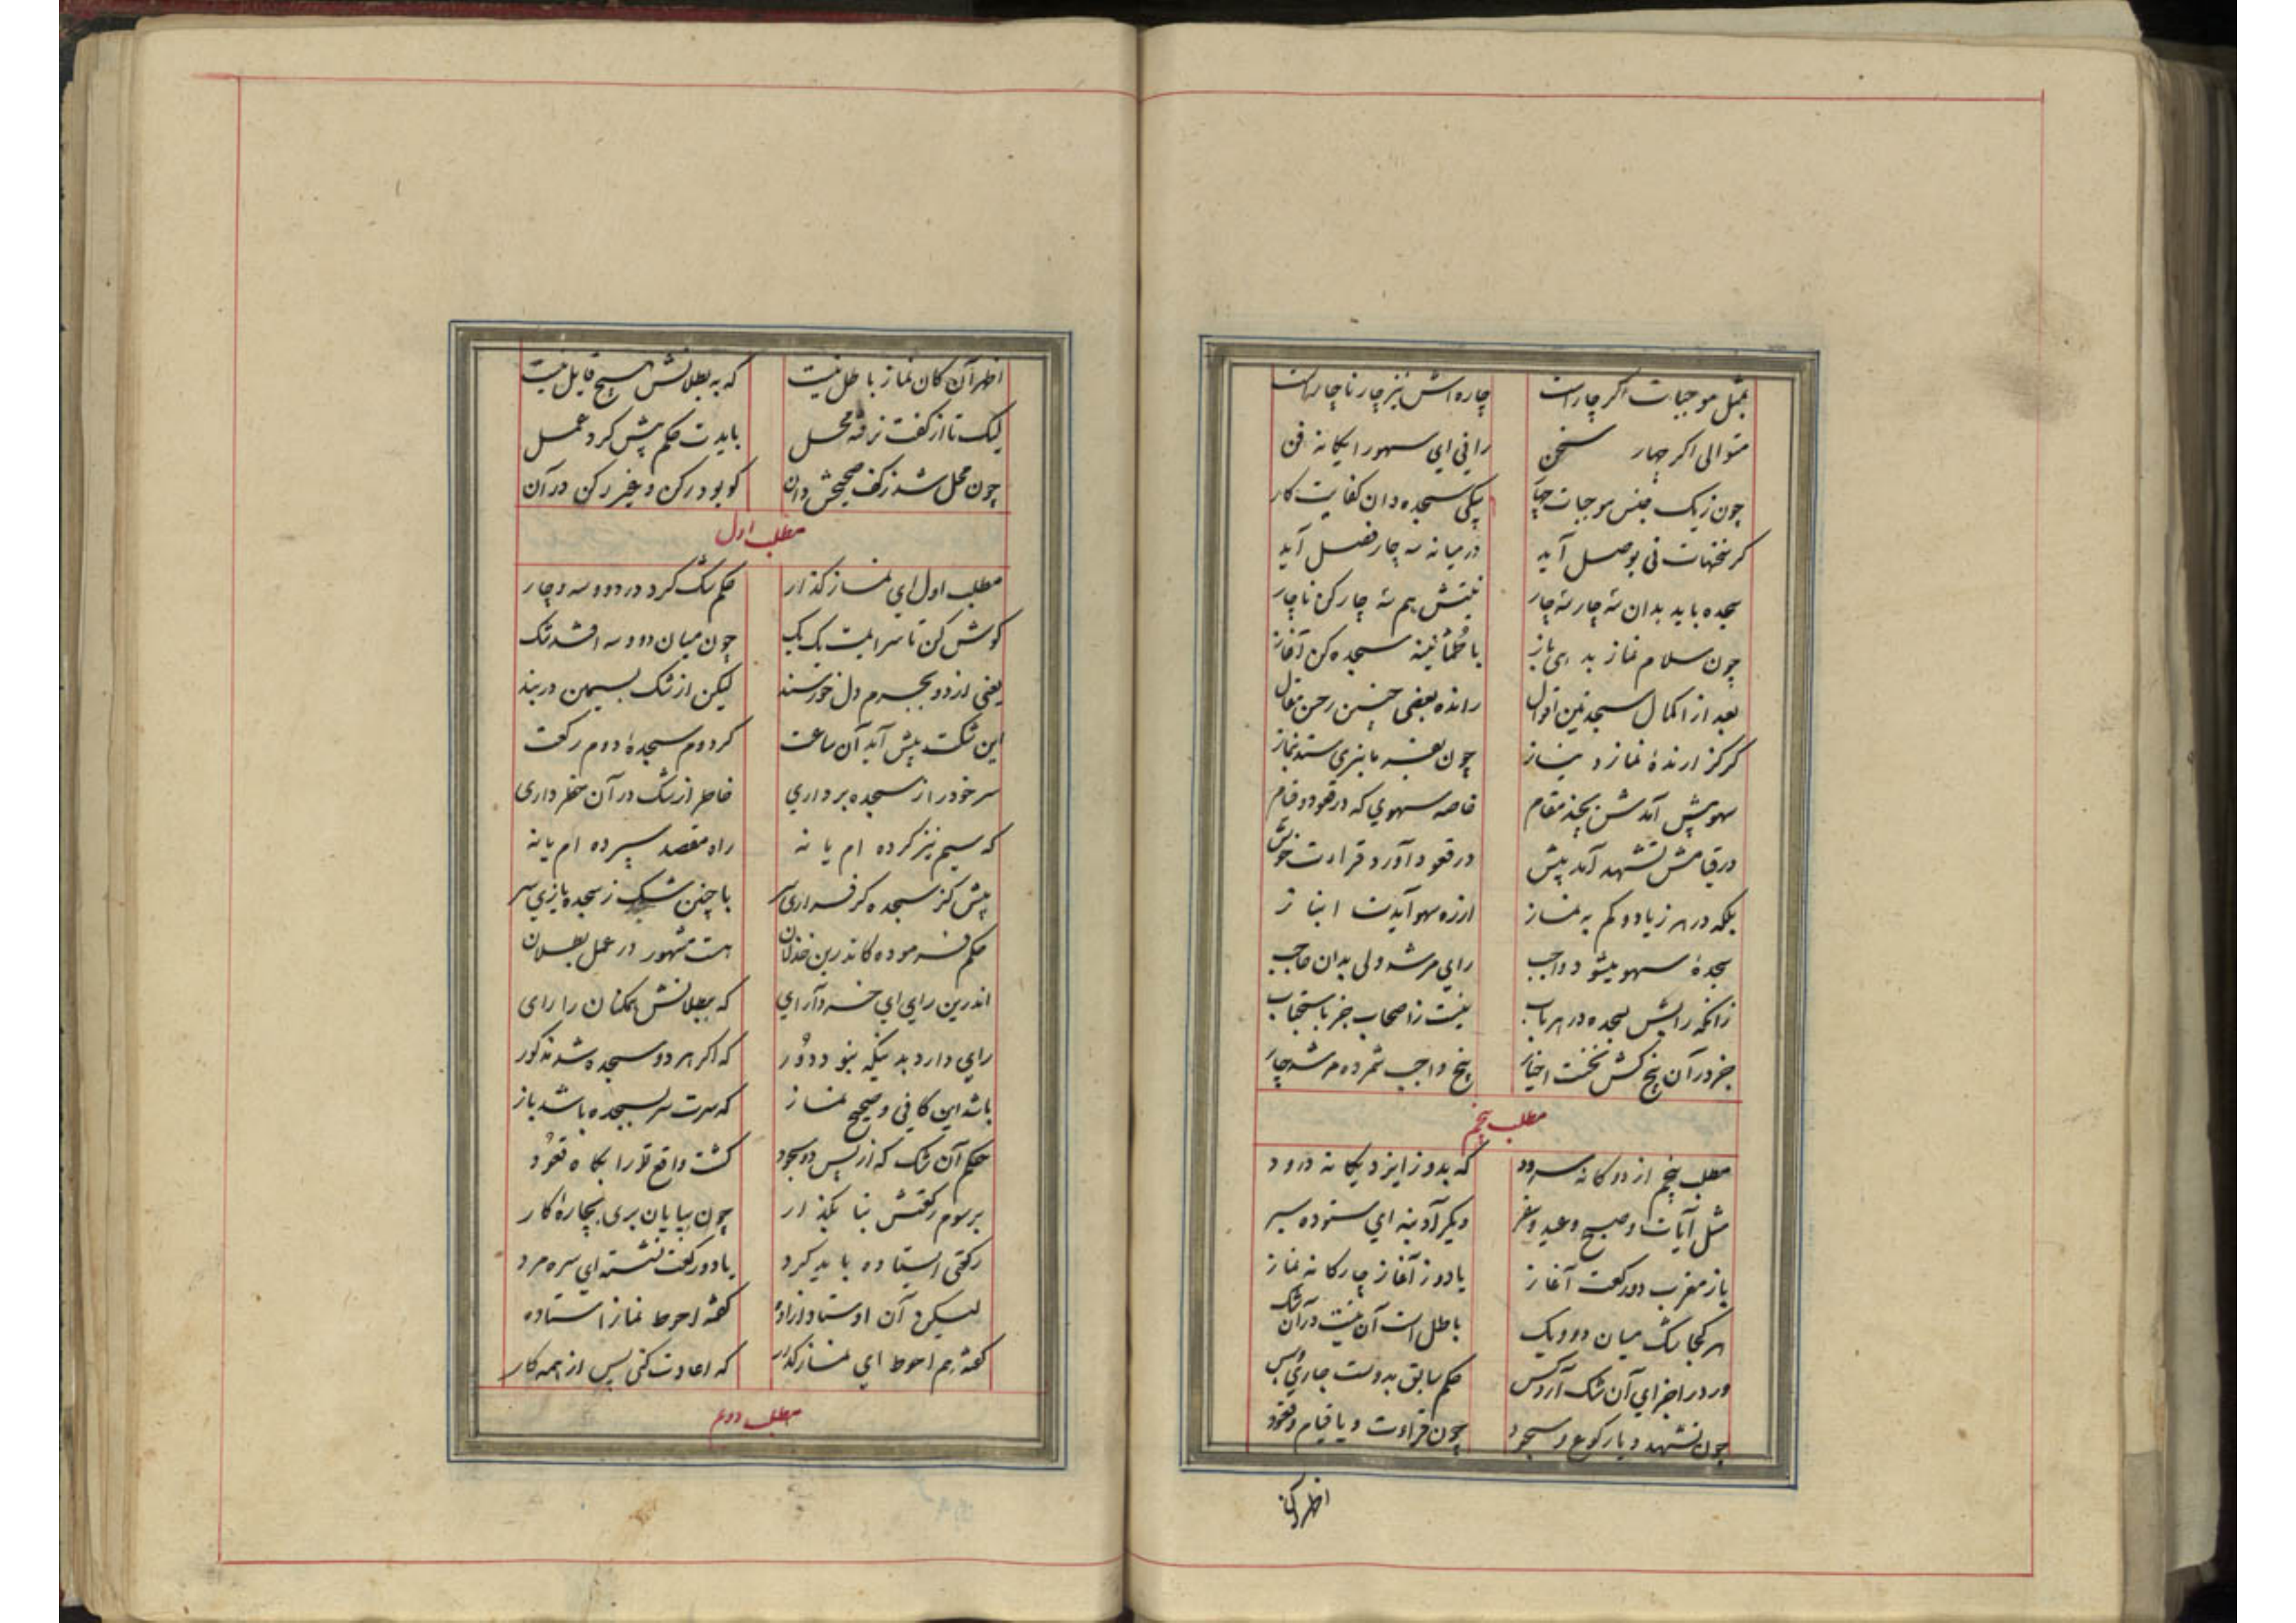 بمثل موجبات اگر چار است چاره اش نیز چار ناچار است
متوالی اگر چهار سخن رانی ای سهو را یگانه فن
چون ز یک جنس موجبات چهار یکی سجده دان کفایت کار
گر سخنهات نی بوصل آید در میانه سه چار فصل آید
سجده باید بدان سه چار سه چار نیتش هم سه چار کن ناچار
چون سلام نماز بدهی باز با طمأنینه سجده کن آغاز
بعد از اکمال سجدتین اقوال رانده بعضی چنین مقال
گر گزارندهٔ نماز و نیاز چون بعذر نماز
سهو پیش آمدش بچند مقام خاصه سهوی که در قعود و قیام
در قیامش تشهد آمد پیش در قعود آورد قراءت خویش
بلکه در هر زیاد و کم به نماز از ره سهو آیدت انباز
سجدهٔ سهو میشود واجب رای مرشد ولی بدان حاجب
زانکه رایش بسجده در هر باب نیست ز اصحاب جز باستحباب
جز در آن پنج کش نخست اخیار پنج واجب شمرده مرشد چار
مطلب پنجم
مطلب پنجم از دوگانه سرود که بدو ز ایزد یگانه درود
مثل آیات و صبح و عید و سفر دیگر آدینه ای ستوده سیر
باز مغرب دو رکعت آغاز یا دو ز آغاز چارگانه نماز
هر کجا شک میان دو و یک باطل است آن نیست در آن شک
ور در اجزای آن شک آرد کس حکم سابق بدوست جاری و بس
چون تشهد و یا رکوع و سجود چون قراءت و یا قیام و قعود
اظهر آن
اظهر آن کان نماز باطل نیست که به بطلانش هیچ قایل نیست
لیک تا از کفت نرفته محل بایدت حکم پیش کرد عمل
چون محل شد ز کف صحیحش دان کو بود رکن و غیر رکن در آن
مطلب اول
مطلب اول ای نماز گذار حکم شک کرد در دو و سه و چار
گوش کن تا سرایمت یک یک چون میان دو و سه افتد شک
یعنی از دو بجزم دل خورسند لیکن از شک بسیمین در بند
این شکت پیش آید آن ساعت کز دوم سجدهٔ دوم رکعت
سر خود را ز سجده برداری خاطر از شک در آن خطر داری
که سیم نیز کرده ام یا نه راه مقصد سپرده ام یا نه
پیش کز سجده گر فرازی سر با چنین شک ز سجده یازی سر
حکم فرموده کاندرین خذلان هست مشهور در عمل بطلان
اندرین رای ای خرد آرای که ببطلانش همگنان را رای
رای دارد بدینکه نبود دور که اگر هر دو سجده شد مذکور
باشد این کافی و صحیح نماز که سرت سر بسجده باشد باز
حکم آن شک که از پس دو سجود گشت واقع ترا بگاه قعود
بر سوم رکعتش بنا بگذار چون بپایان بری بچارهٔ کار
رکعتی ایستاده باید کرد یا دو رکعت نشسته ای سره مرد
لیکن آن اوستاد آزاده گفته احوط نماز استاده
گفته هم احوط ای نماز گذار که اعادت کنی پس از همه کار
مطلب دوم